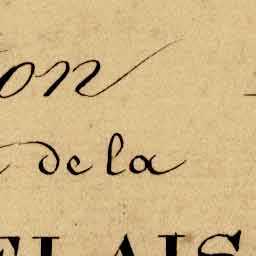 on
de la
ELAIS